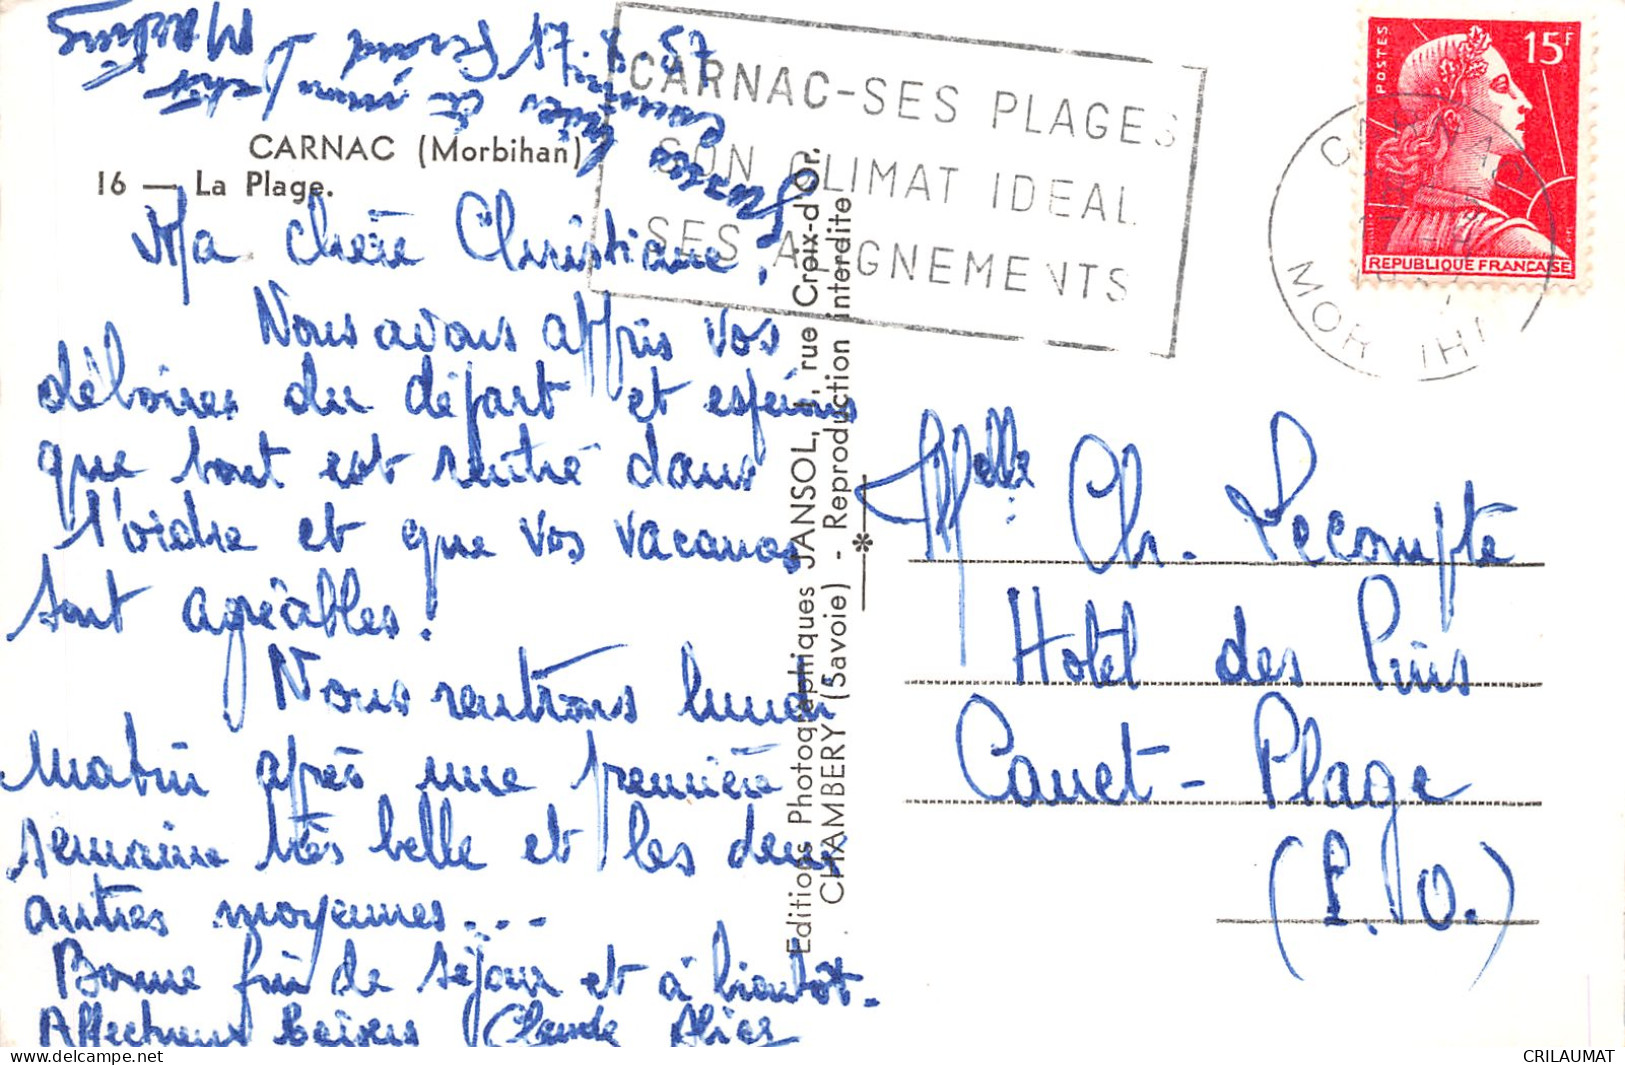 17.8.57
CARNAC (Morbihan)
16 — La Plage.
Ma chère Christiane,
Nous avons appris vos
déboires du départ et espérons
que tout est rentré dans
l'ordre et que vos vacances
sont agréables.
Nous rentrons lundi
matin après une première
semaine très belle et les deux
autres moyennes...
Bonne fin de séjour et à bientôt.
Affectueux baisers Claude
Editions Photographiques JANSOL, 1, rue Croix-d'Or.
CHAMBERY (Savoie) - Reproduction interdite
CARNAC-SES PLAGES
SON CLIMAT IDEAL
SES ALIGNEMENTS
POSTES
15F
REPUBLIQUE FRANÇAISE
CARNAC
MORBIHAN
Melle Ch. Lecompte
Hotel des Pins
Canet-Plage
(P.O.)
CRILAUMAT
delcampe.net